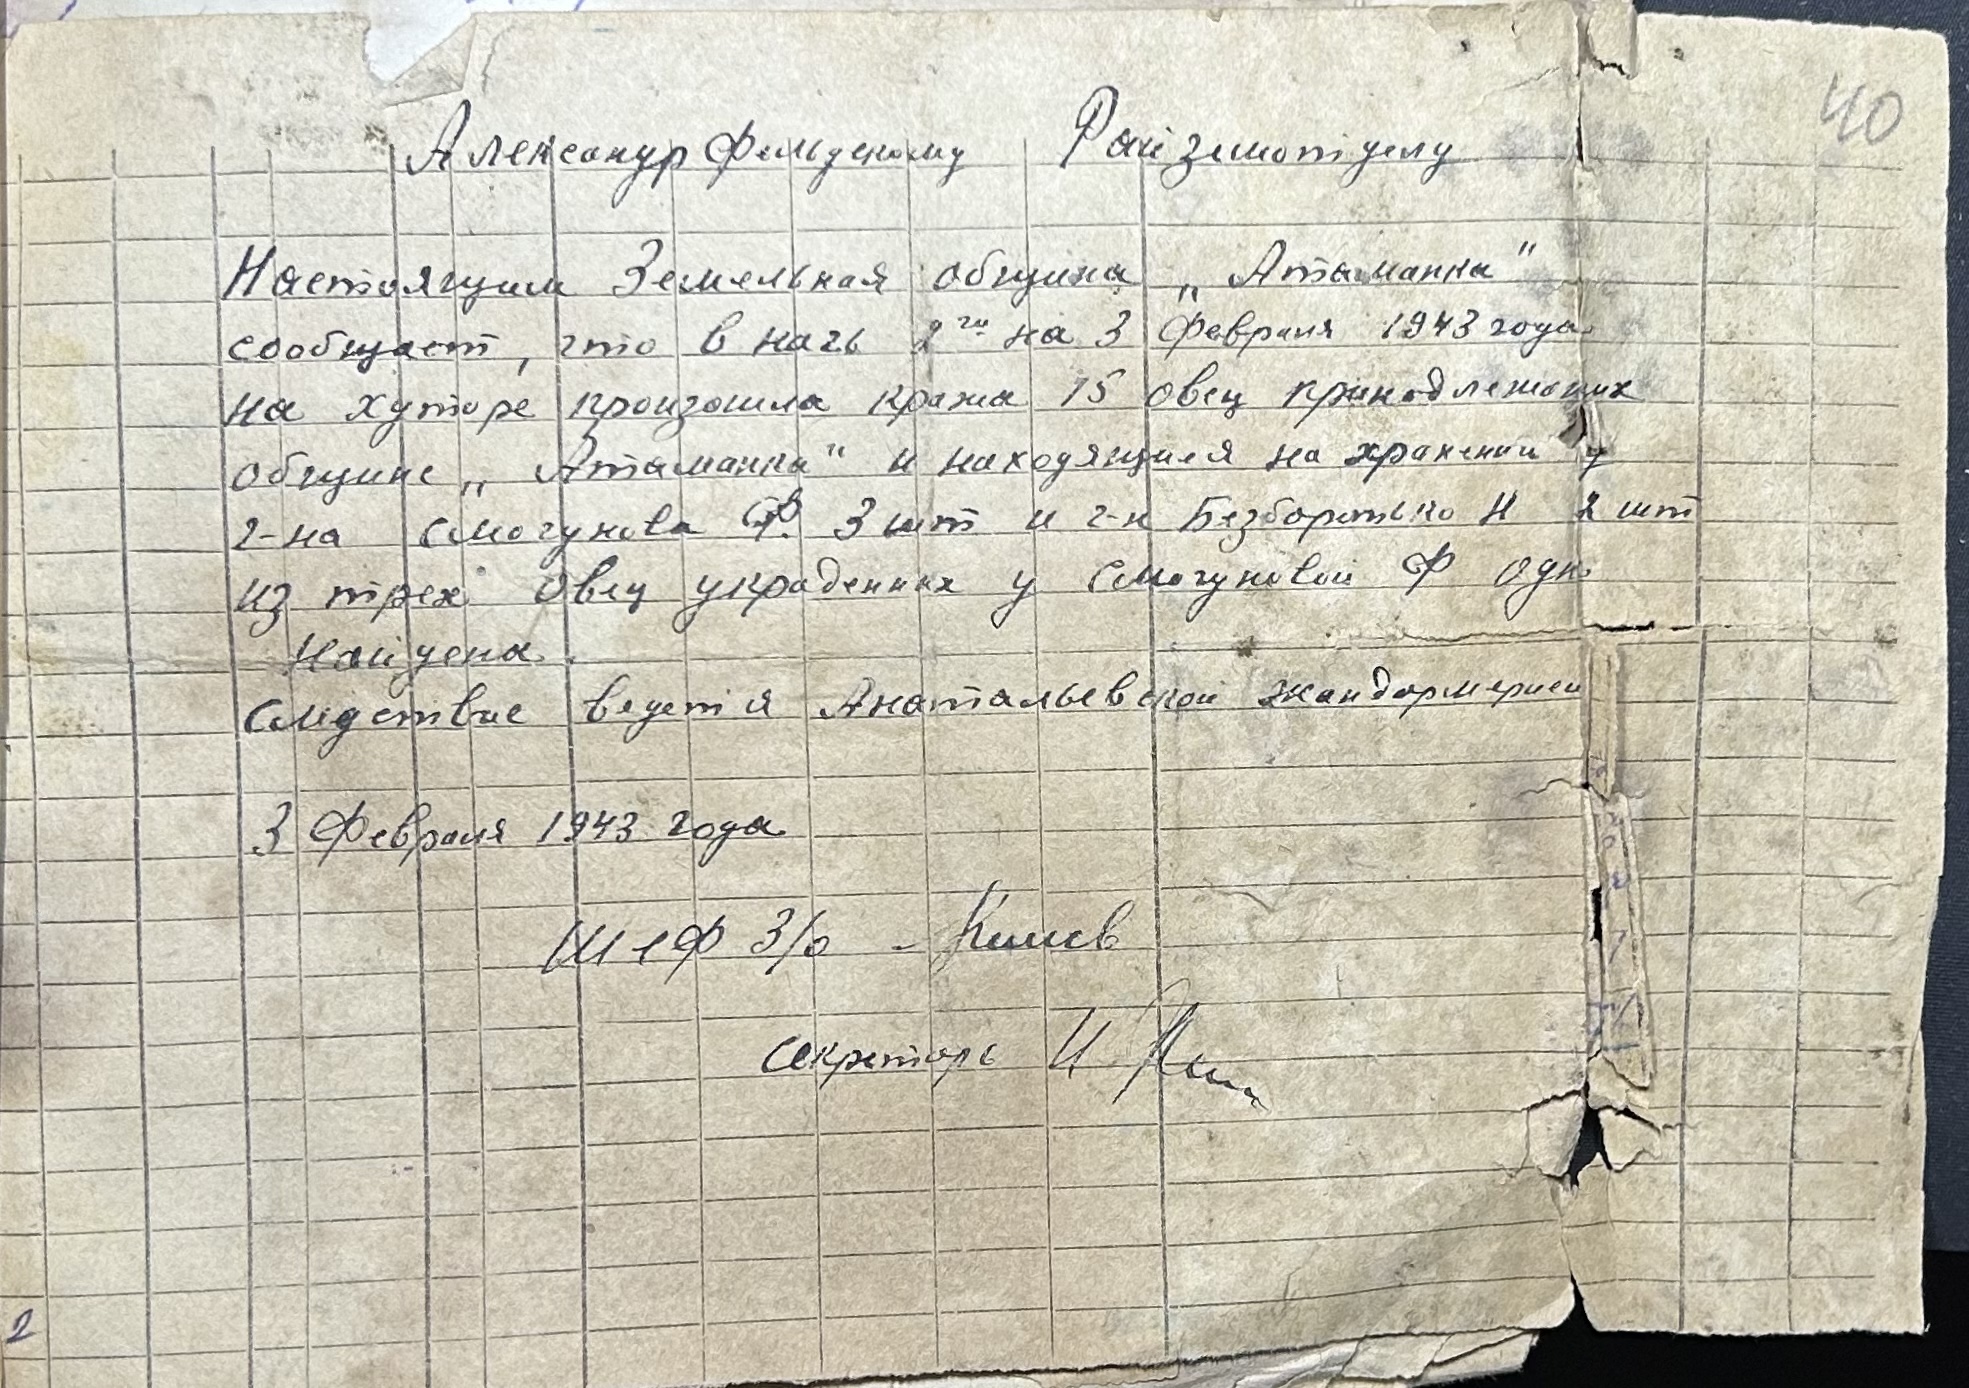 40
Александрфельдскому Райземотделу
Настоящим Земельная община „Атаманка"
сообщает, что в ночь 2го на 3 Февраля 1943 года
на хуторе произошла кража 15 овец принодлежащих
общине „Атаманка" и находящиеся на хранении у
г-на Смогунова Ф. 3 шт и г-н Безборотько Н 2 шт
из трех овец украденных у Смогуновой Ф одн
найдена.
Следствие ведется Анатальевской жандармерией
3 Февраля 1943 года
Шеф З/о -
Секретарь И
2